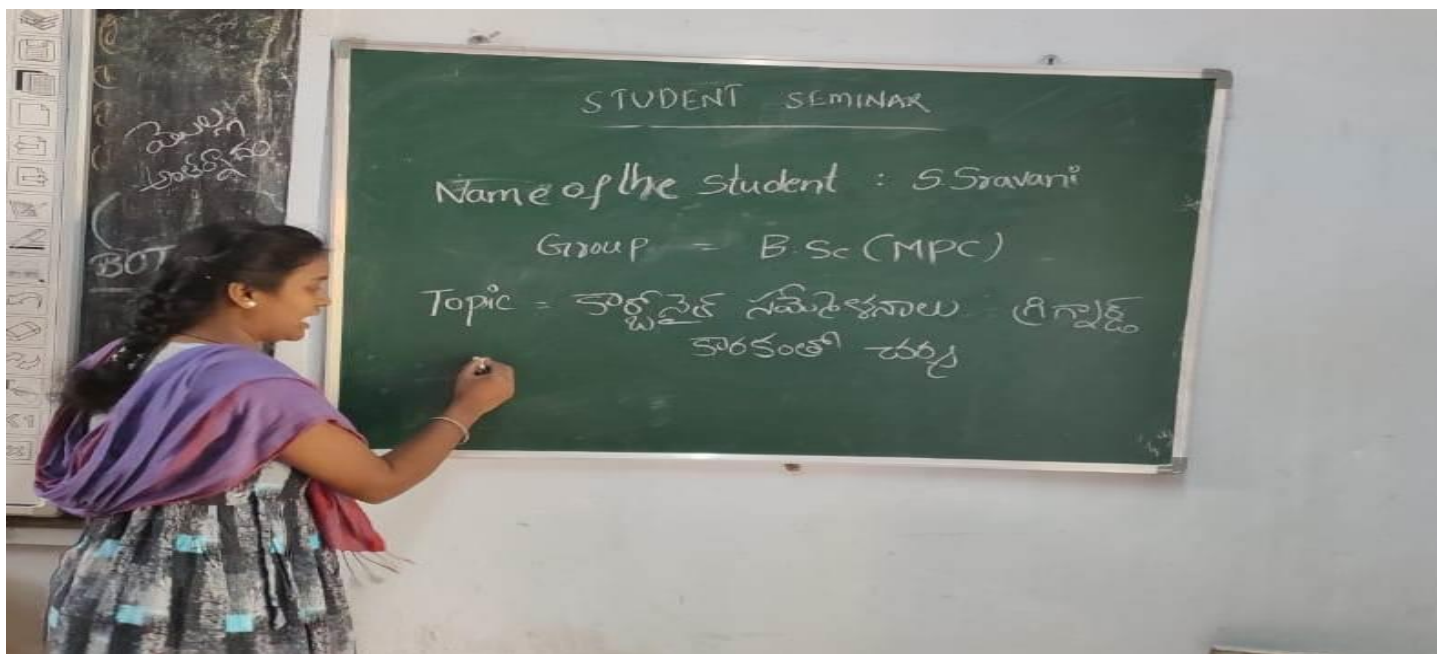 STUDENT SEMINAR
Name of the Student : S.Sravani
Group = B.Sc (MPC)
Topic = కార్బోనైల్ సమ్మేళనాలు : గ్రిగ్నార్డ్
కారకంతో చర్య
BOT